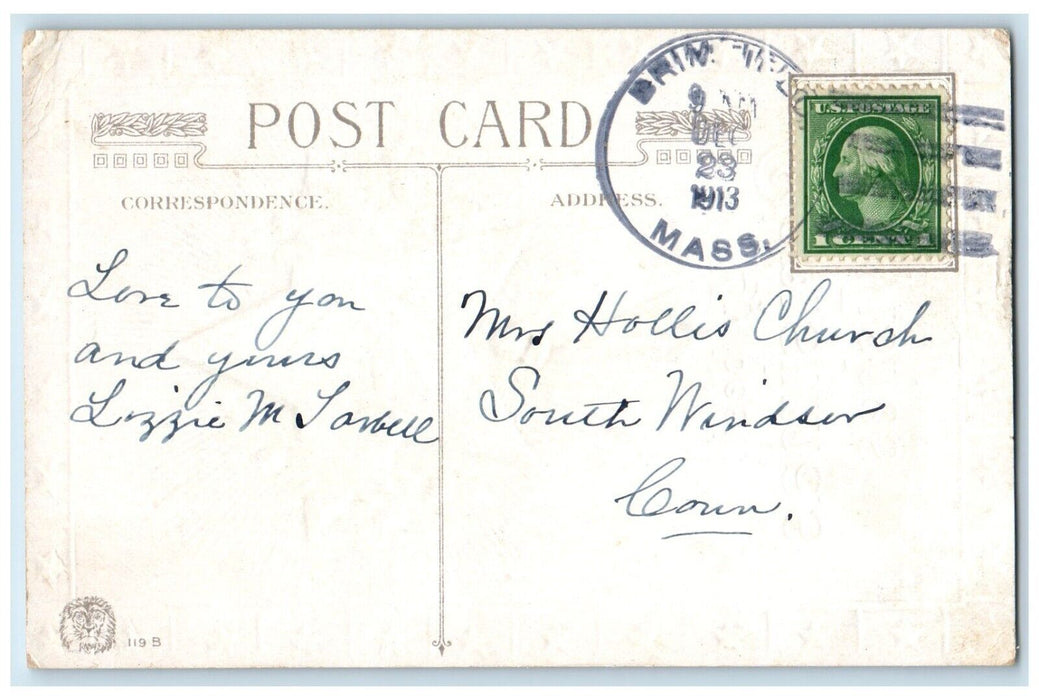 POST CARD
CORRESPONDENCE.
ADDRESS.
BRIM
9 AM
DEC
23
1913
MASS.
U.S. POSTAGE
1 CENT 1
Love to you
and yours
Lizzie M Tarbell
Mrs Hollis Church
South Windsor
Conn.
119 B